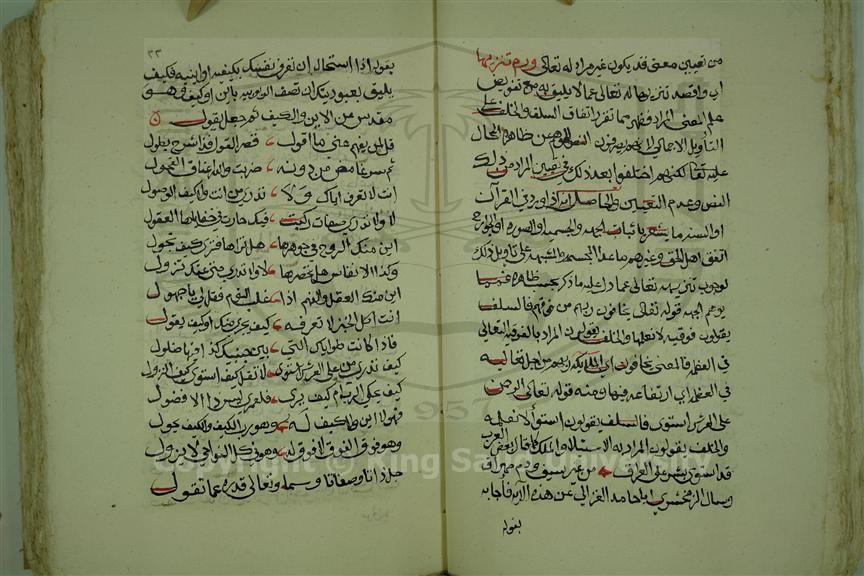 من تعيين معنى قد يكون غير مراد له تعالى ورم تنزيها
اي واقصد تنزيها له تعالى عما لا يليق به مع تفويض
علم المعنى المراد فظهر مما تقرر اتفاق السلف والخلف على
التأويل الاجمالي لانهم يصرفون النص الموهم عن ظاهره المحال
عليه تعالى لكنهم اختلفوا بعد ذلك في تعيين المراد من ذلك
النص وعدم التعيين والحاصل انه اذا ورد في القرآن
او السنة ما يشعر باثبات الجهة والجسمية والصورة او الجوارح
اتفق اهل الحق وغيرهم ما عدا المجسمة والمشبهة على تاويل ذلك
لوجوب تنزيهه تعالى عما دل عليه ما ذكر بحسب ظاهره فمما
يوهم الجهة قوله تعالى يخافون ربهم من فوقهم فالسلف
يقولون فوقية لا نعلمها والخلف يقولون المراد بالفوقية التعالي
في العظمة فالمعنى يخافون اي الملائكة ربهم من اجل تعاليه
في العظمة اي ارتفاعه فيها ومنه قوله تعالى الرحمن
على العرش استوى فالسلف يقولون استواء لا نعلمه
والخلف يقولون المراد به الاستيلاء والملك كما قال بعض العرب
قد استوى بشر على العراق من غير سيف ودم مهراق
وسأل الزمخشري ابا حامد الغزالي عن هذه الآية فأجابه
بقوله
٣٣
بقوله اذا استحال ان تعرف نفسك بكيفية او اينية فكيف
يليق بعبوديتك ان تصف الربوبية باين او كيف وهو
مقدس عن الاين والكيف ثم جعل يقول
قل لمن يفهم عني ما اقول قصر القول فذا شرح يطول
ثم سر غامض من دونه ضربت والله اعناق الفحول
انت لا تعرف اياك ولا تدر من انت ولا كيف الوصول
لا ولا تدري صفات ركبت فيك حارت في خفاياها العقول
اين منك الروح في جوهرها هل تراها فترى كيف تجول
وكذا الانفاس هل تحصرها لا ولا تدري متى عنك تزول
اين منك العقل والفهم اذا غلب النوم فقل لي يا جهول
انت اكل الخبز لا تعرفه كيف يجري منك او كيف يبول
فاذا كانت طواياك التي بين جنبيك كذا فيها ضلول
كيف تدري من على العرش استوى لا تقل كيف استوى كيف النزول
كيف يحكي الرب ام كيف يرى فلعمري ليس ذا الا فضول
فهو لا اين ولا كيف له وهو رب الكيف والكيف يحول
وهو فوق الفوق لا فوق له وهو في كل النواحي لا يزول
جل ذاتا وصفاتا وسما وتعالى قدره عما تقول